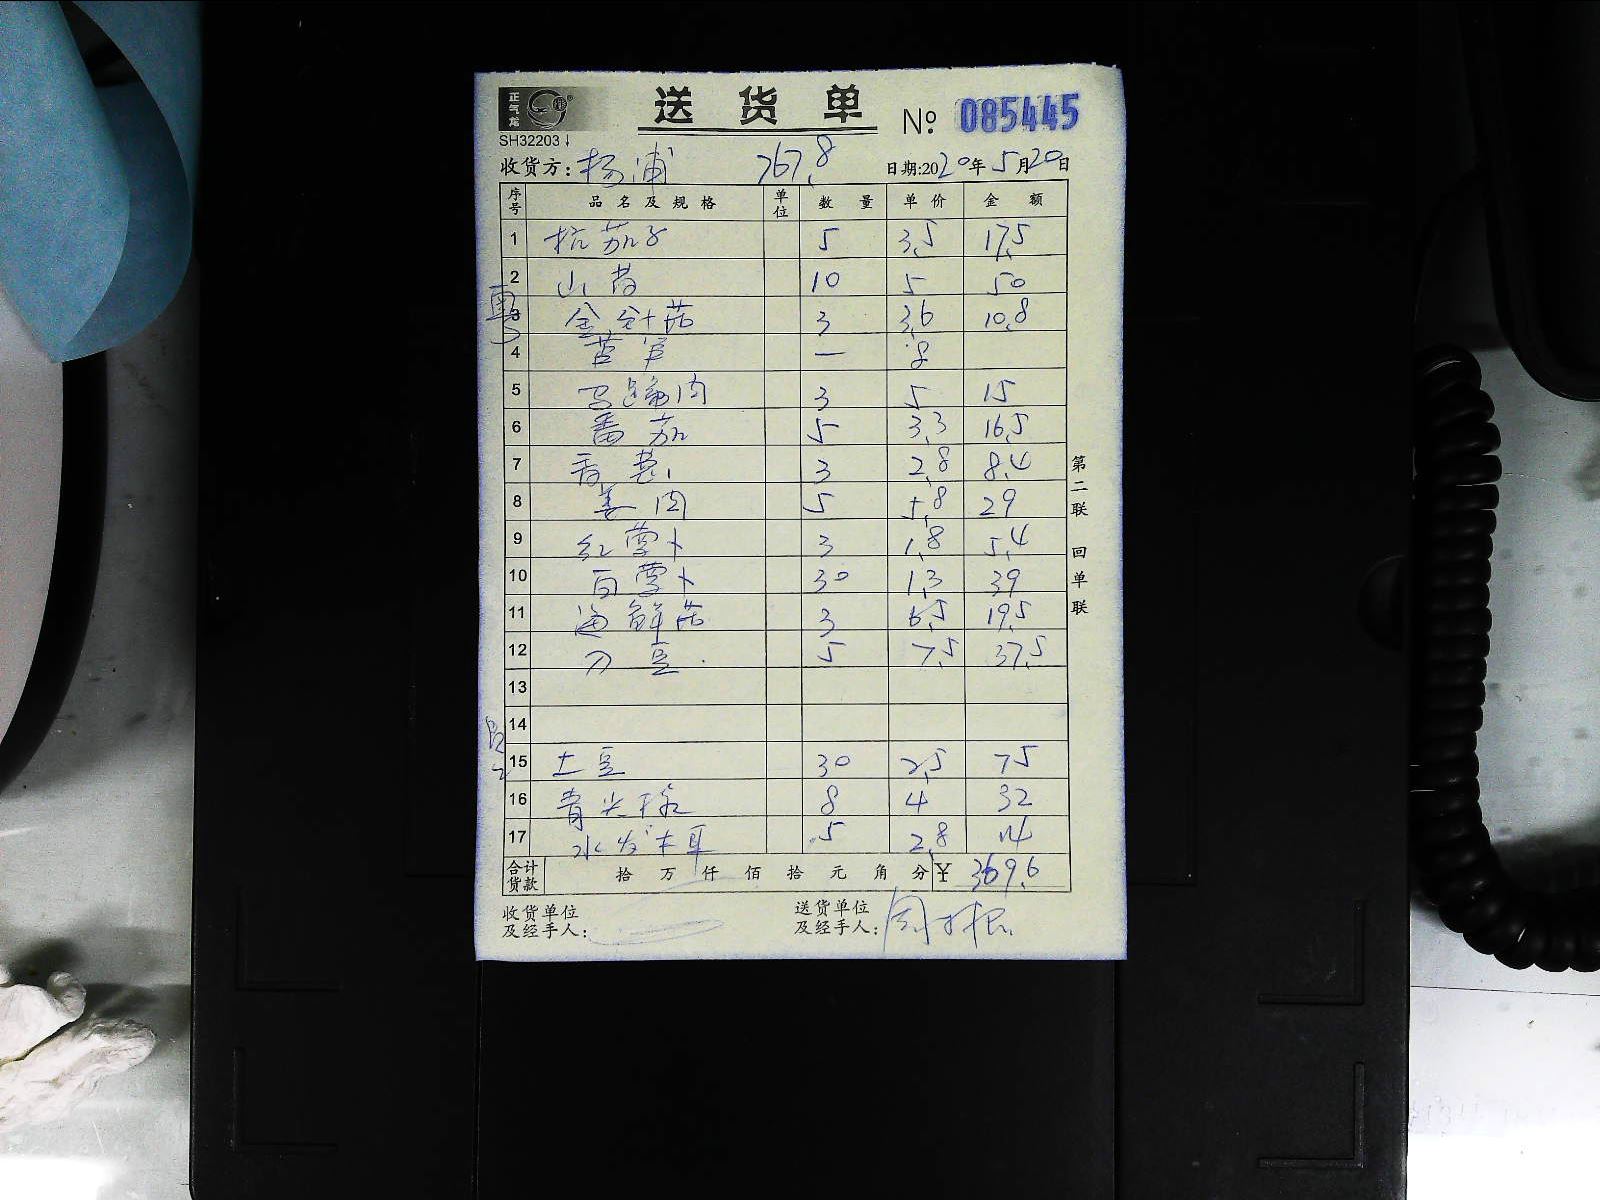 正气龙
送货单 № 085445
SH32203
收货方: 杨浦 767.8 日期:2020年5月20日
序号 品名及规格 单位 数量 单价 金额
1 杭茄子 5 3.5 17.5
2 山药 10 5 50
3 金针菇 3 3.6 10.8
4 芦笋 一 8
5 马蹄肉 3 5 15
6 番茄 5 3.3 16.5
7 香葱 3 2.8 8.4
8 姜肉 5 5.8 29
9 红萝卜 3 1.8 5.4
10 白萝卜 30 1.3 39
11 海鲜菇 3 6.5 19.5
12 刀豆 5 7.5 37.5
13
14
15 土豆 30 2.5 75
16 青尖椒 8 4 32
17 水发木耳 5 2.8 14
合计货款 拾万仟佰拾元角分 ¥ 369.6
收货单位及经手人:
送货单位及经手人: 周
第二联 回单联